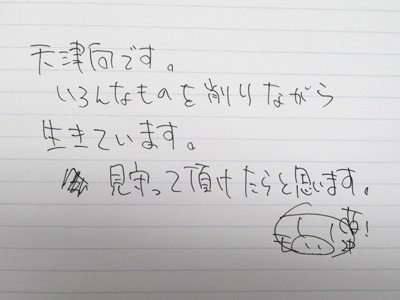 天津向です。
いろんなものを削りながら
生きています。
見守って頂けたらと思います。